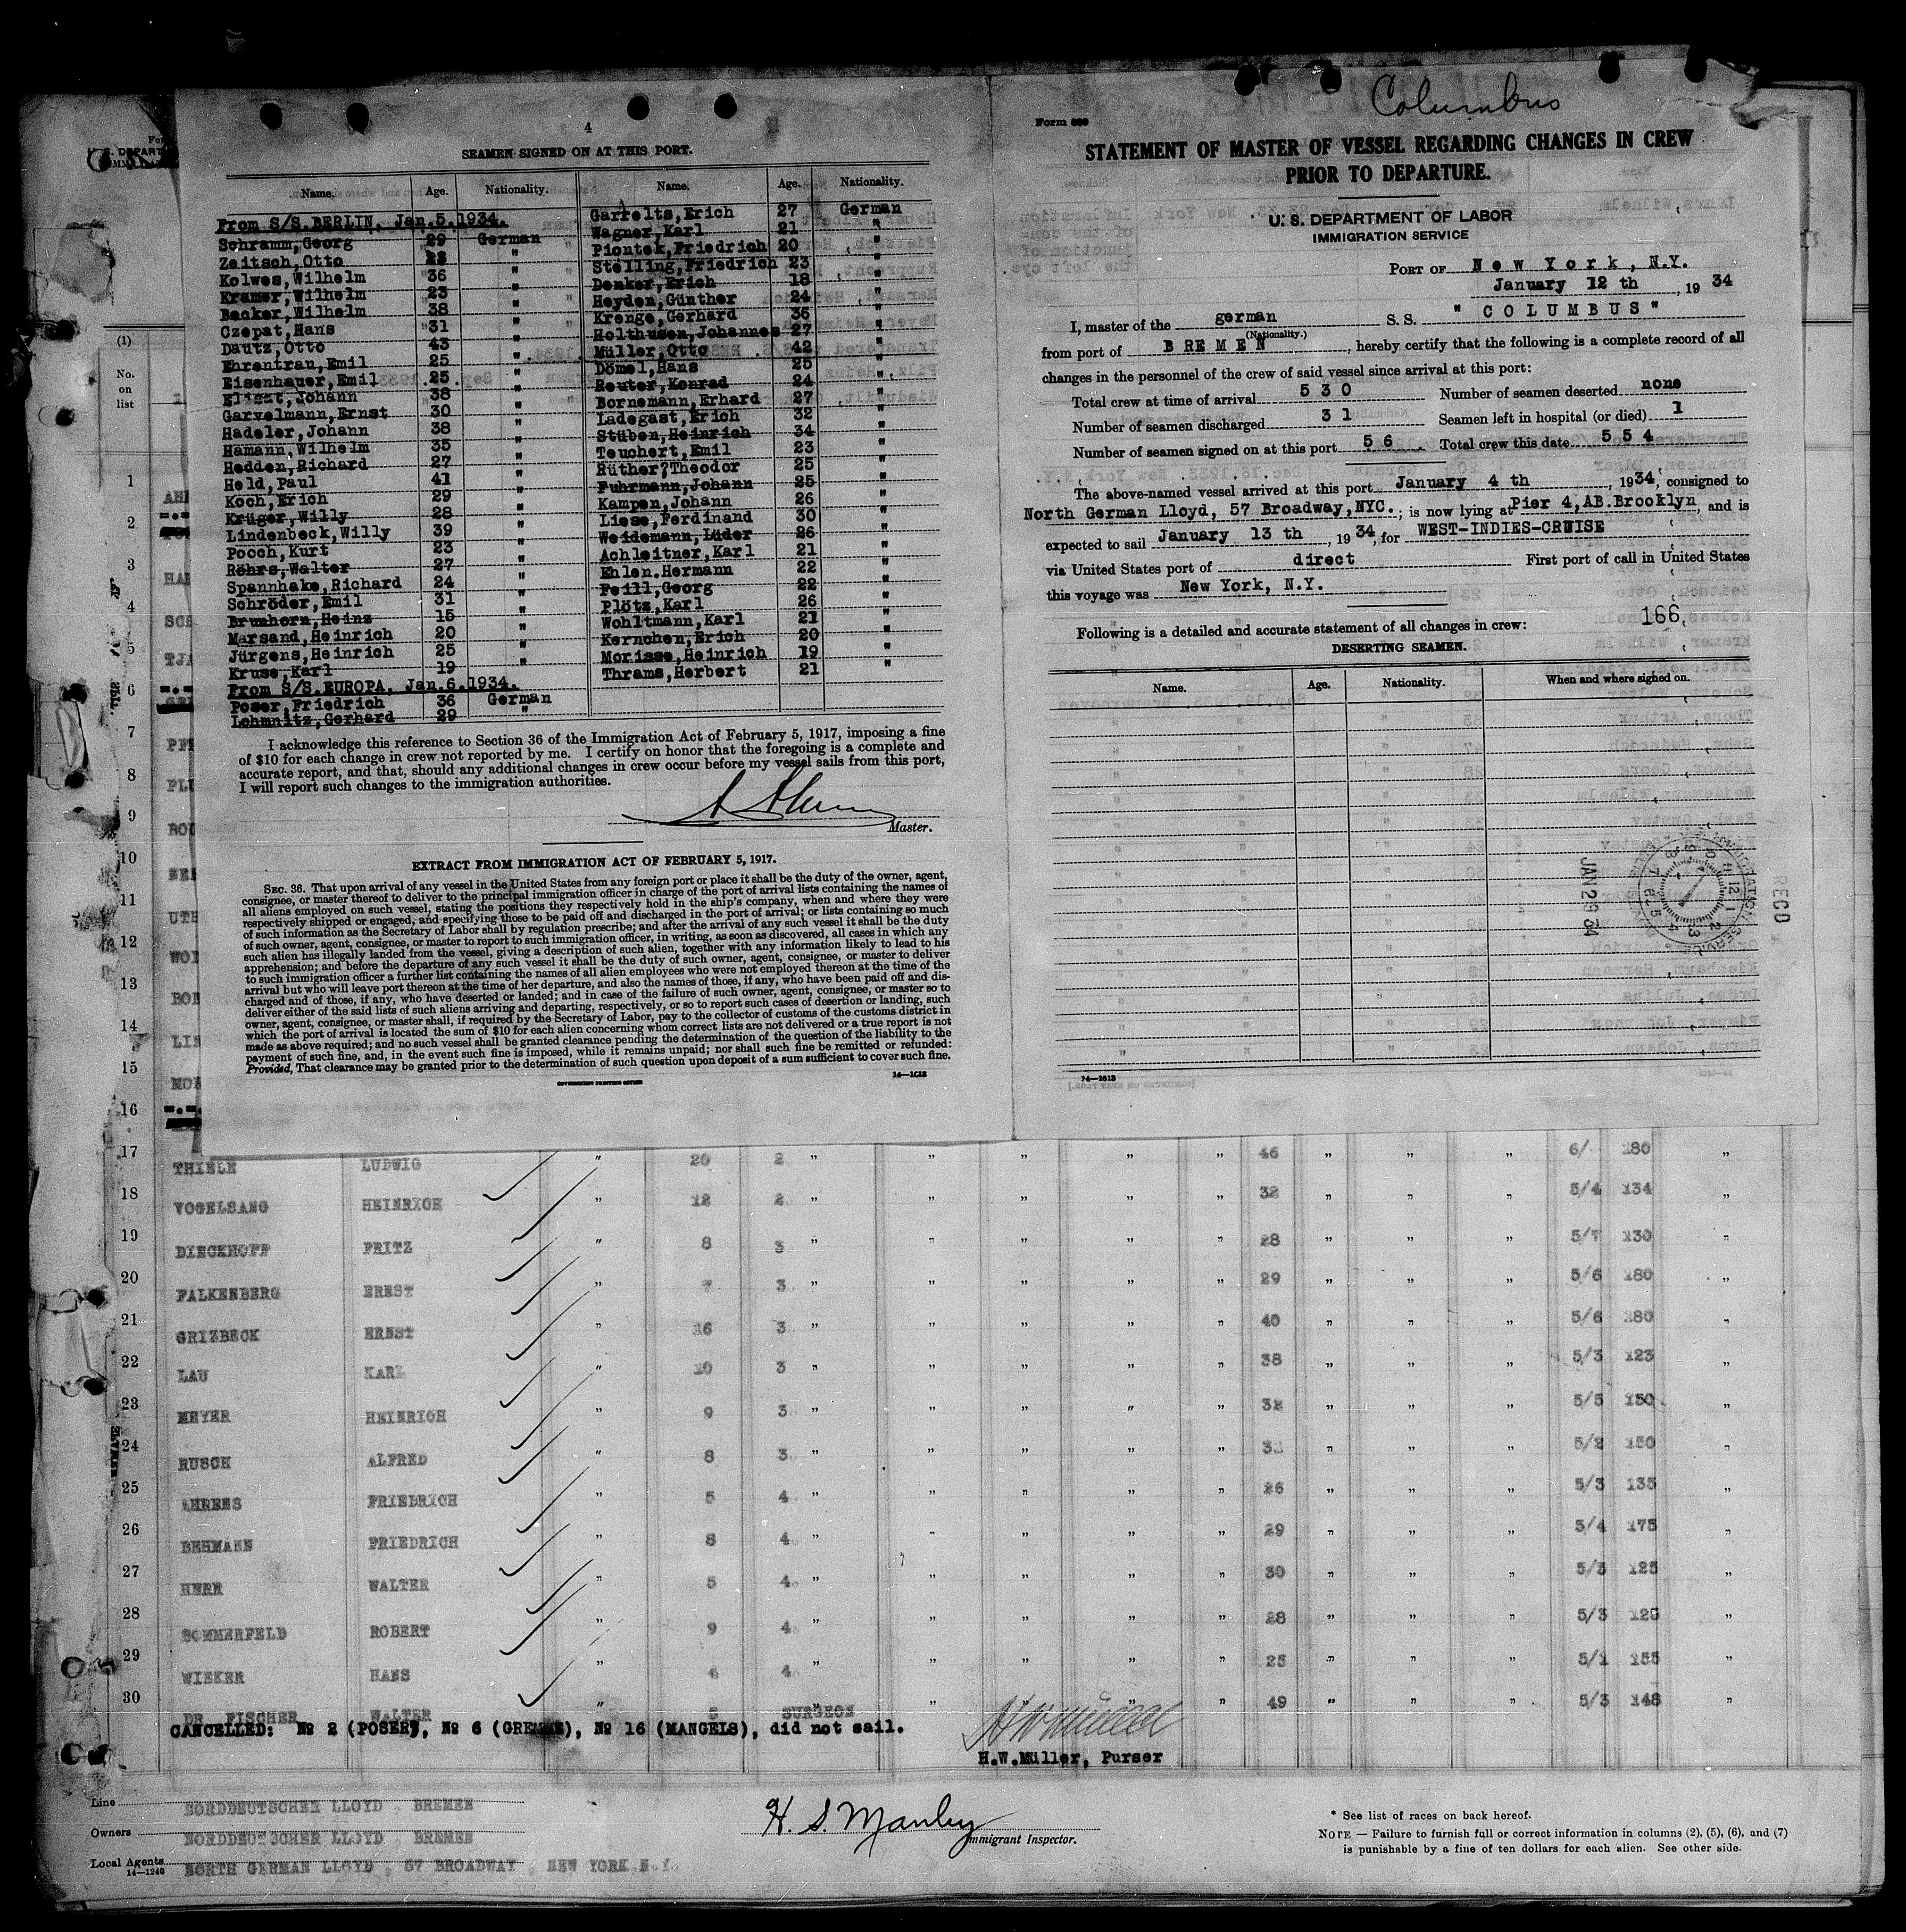 4
SEAMEN SIGNED ON AT THIS PORT.
Name. Age. Nationality. Name. Age. Nationality.
From S/S.BERLIN, Jan.5.1934.
Schramm,Georg 29 German
Zeitsch,Otto 23 "
Kolwes,Wilhelm 36 "
Kramer,Wilhelm 23 "
Becker,Wilhelm 38 "
Czepat,Hans 31 "
Dautz,Otto 43 "
Ehrentrau,Emil 25 "
Eisenhauer,Emil 25 "
Johann 38 "
Garvelmann,Ernst 30 "
Hadeler,Johann 38 "
Hamann,Wilhelm 35 "
Hedden,Richard 27 "
Held,Paul 41 "
Koch,Erich 29 "
Krüger,Willy 28 "
Lindenbeck,Willy 39 "
Pooch,Kurt 23 "
Röhrs,Walter 27 "
Spannhake,Richard 24 "
Schröder,Emil 31 "
Brumhorn,Heinz 15 "
Marsand,Heinrich 20 "
Jürgens,Heinrich 25 "
Kruse,Karl 19 "
From S/S.EUROPA, Jan.6.1934.
Poser,Friedrich 36 German
Lohmnitz,Gerhard 29 "
Garrelts,Erich 27 German
Wagner,Karl 21 "
Piontek,Friedrich 20 "
Stelling,Friedrich 23 "
Denker,Erich 18 "
Heyden,Günther 24 "
Krenge,Gerhard 36 "
Holthusen,Johannes 27 "
Müller,Otto 42 "
Dömel,Hans 25 "
Reuter,Konrad 24 "
Bornemann,Erhard 27 "
Ladegast,Erich 32 "
Stüben,Heinrich 34 "
Teuchert,Emil 23 "
Rüther?Theodor 25 "
Fuhrmann,Johann 25 "
Kampen,Johann 26 "
Liese,Ferdinand 30 "
Weidemann,Lüder 26 "
Achleitner,Karl 21 "
Ehlen.Hermann 22 "
Feill,Georg 22 "
Plötz,Karl 26 "
Wohltmann,Karl 21 "
Kernchen,Erich 20 "
Morisse,Heinrich 19 "
Thrams,Herbert 21 "
I acknowledge this reference to Section 36 of the Immigration Act of February 5, 1917, imposing a fine
of $10 for each change in crew not reported by me. I certify on honor that the foregoing is a complete and
accurate report, and that, should any additional changes in crew occur before my vessel sails from this port,
I will report such changes to the immigration authorities.
Master.
EXTRACT FROM IMMIGRATION ACT OF FEBRUARY 5, 1917.
SEC. 36. That upon arrival of any vessel in the United States from any foreign port or place it shall be the duty of the owner, agent,
consignee, or master thereof to deliver to the principal immigration officer in charge of the port of arrival lists containing the names of
all aliens employed on such vessel, stating the positions they respectively hold in the ship's company, when and where they were
respectively shipped or engaged, and specifying those to be paid off and discharged in the port of arrival; or lists containing so much
of such information as the Secretary of Labor shall by regulation prescribe; and after the arrival of any such vessel it shall be the duty
of such owner, agent, consignee, or master to report to such immigration officer, in writing, as soon as discovered, all cases in which any
such alien has illegally landed from the vessel, giving a description of such alien, together with any information likely to lead to his
apprehension; and before the departure of any such vessel it shall be the duty of such owner, agent, consignee, or master to deliver
to such immigration officer a further list containing the names of all alien employees who were not employed thereon at the time of the
arrival but who will leave port thereon at the time of her departure, and also the names of those, if any, who have been paid off and dis-
charged and of those, if any, who have deserted or landed; and in case of the failure of such owner, agent, consignee, or master so to
deliver either of the said lists of such aliens arriving and departing, respectively, or so to report such cases of desertion or landing, such
owner, agent, consignee, or master shall, if required by the Secretary of Labor, pay to the collector of customs of the customs district in
which the port of arrival is located the sum of $10 for each alien concerning whom correct lists are not delivered or a true report is not
made as above required; and no such vessel shall be granted clearance pending the determination of the question of the liability to the
payment of such fine, and, in the event such fine is imposed, while it remains unpaid; nor shall such fine be remitted or refunded:
Provided, That clearance may be granted prior to the determination of such question upon deposit of a sum sufficient to cover such fine.
GOVERNMENT PRINTING OFFICE 14—1613
Columbus
Form
STATEMENT OF MASTER OF VESSEL REGARDING CHANGES IN CREW
PRIOR TO DEPARTURE.
U. S. DEPARTMENT OF LABOR
IMMIGRATION SERVICE
PORT OF New York, N.Y.
January 12 th, 19 34
I, master of the german S. S. "COLUMBUS"
(Nationality.)
from port of BREMEN, hereby certify that the following is a complete record of all
changes in the personnel of the crew of said vessel since arrival at this port:
Total crew at time of arrival 530 Number of seamen deserted none
Number of seamen discharged 31 Seamen left in hospital (or died) 1
Number of seamen signed on at this port 56 Total crew this date 554
The above-named vessel arrived at this port January 4 th, 1934, consigned to
North German Lloyd, 57 Broadway,NYC.; is now lying at Pier 4,AB.Brooklyn, and is
expected to sail January 13 th, 19 34, for WEST-INDIES-CRUISE
via United States port of direct First port of call in United States
this voyage was New York, N.Y.
166
Following is a detailed and accurate statement of all changes in crew:
DESERTING SEAMEN.
Name. Age. Nationality. When and where signed on.
RECD
JAN 29 34
14—1613
(1)
No.
on
list
1
2
3
4
5
6
7
8
9
10
11
12
13
14
15
16
17 THIELE LUDWIG " 20 2 " " " " " 46 " " " 6/ 180 "
18 VOGELSANG HEINRICH " 12 2 " " " " " 32 " " " 5/4 134 "
19 DIECKHOFF FRITZ " 8 3 " " " " " 28 " " " 5/7 130 "
20 FALKENBERG ERNST " 7 3 " " " " " 29 " " " 5/6 180 "
21 GRIZBECK ERNST " 16 3 " " " " " 40 " " " 5/6 180 "
22 LAU KARL " 10 3 " " " " " 38 " " " 5/3 123 "
23 MEYER HEINRICH " 9 3 " " " " " 32 " " " 5/5 150 "
24 RUSCH ALFRED " 8 3 " " " " " " " " 5/2 150 "
25 AHRENS FRIEDRICH " 5 4 " " " " " 26 " " " 5/3 135 "
26 BEHMANN FRIEDRICH " 8 4 " " " " " 29 " " " 5/4 175 "
27 HERR WALTER " 5 4 " " " " " 30 " " " 5/3 125 "
28 SOMMERFELD ROBERT " 9 4 " " " " " 28 " " " 5/3 "
29 WIEKER HANS " 4 " " " " " 25 " " " 5/1 155 "
30 DR FISCHER WALTER " 5 SURGEON " " " " 49 " " " 5/3 148 "
CANCELLED: № 2 (POSER), № 6 (GREMME), № 16 (MANGELS), did not sail.
H.W.Müller, Purser
Line NORDDEUTSCHER LLOYD, BREMEN
Owners NORDDEUTSCHER LLOYD, BREMEN
Local Agents NORTH GERMAN LLOYD, 57 BROADWAY, NEW YORK N.Y.
14—1240
H. S. Manley
Immigrant Inspector.
* See list of races on back hereof.
NOTE — Failure to furnish full or correct information in columns (2), (5), (6), and (7)
is punishable by a fine of ten dollars for each alien. See other side.